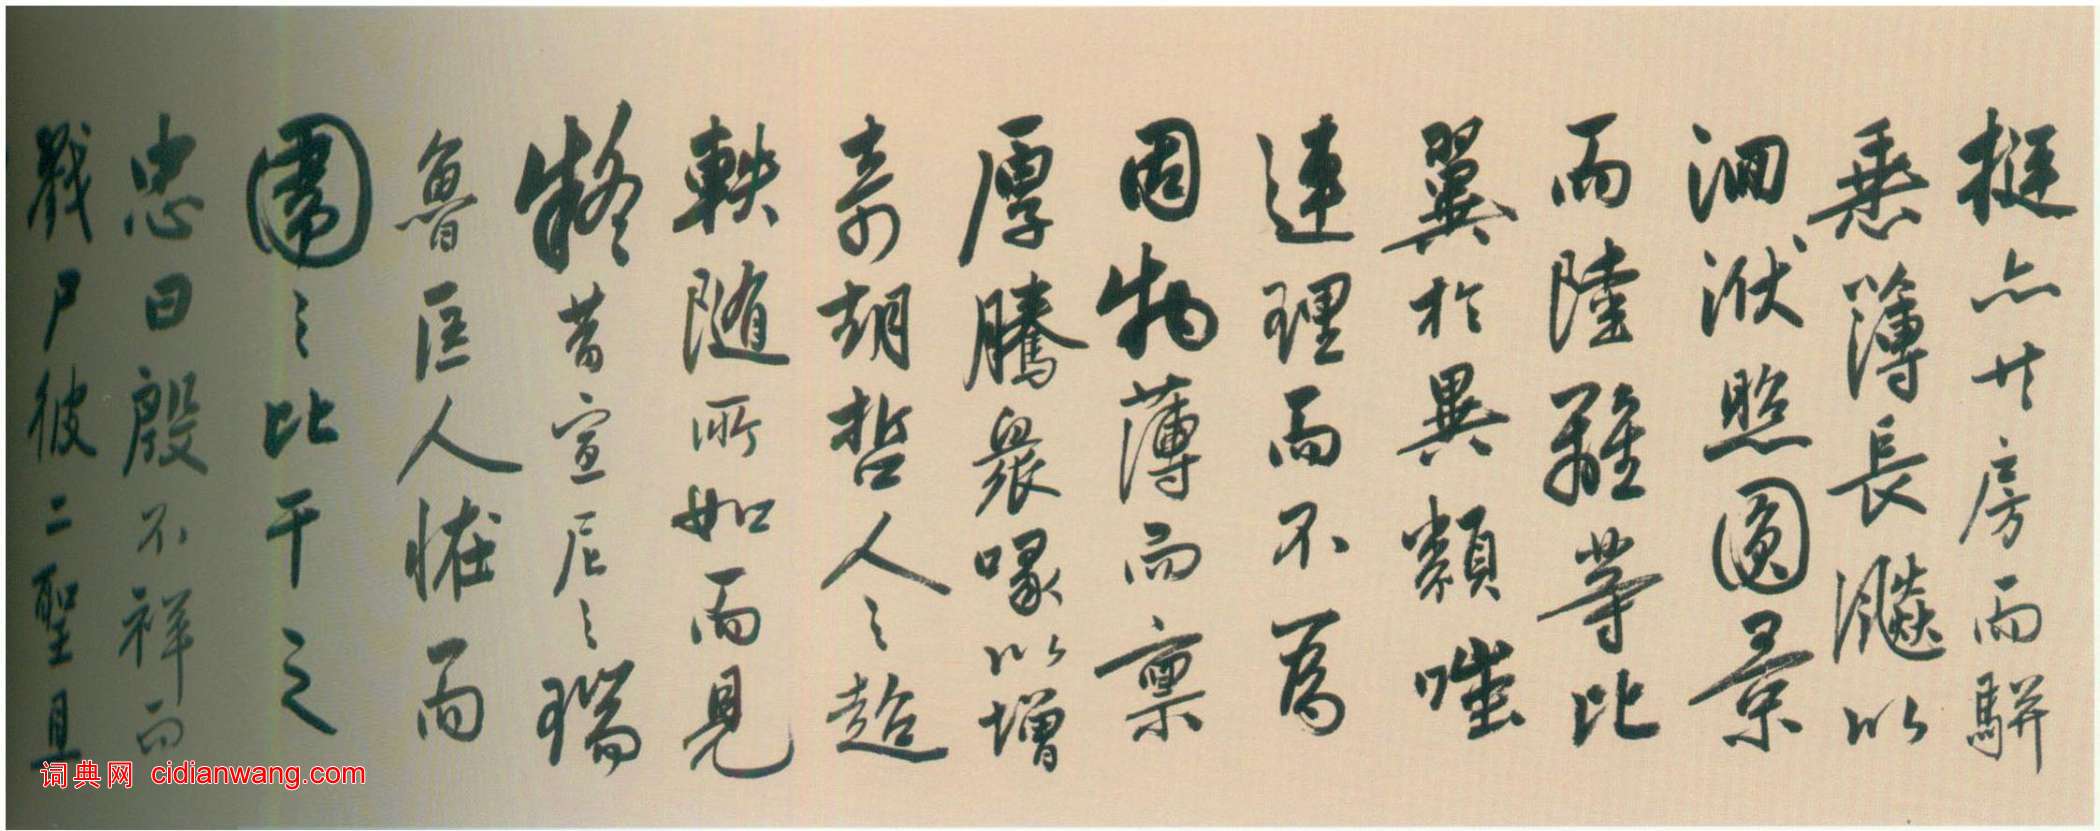 挺廿房而駢
簿長飈以
泗洑照圓景
而陸離等比
翼於異類嗤
連理而不為
固物薄而稟
厚騰衆喙以增
奇胡哲人之超
軼隨所如而見
疑昔宣尼之瑞
魯匡人怪而
圍之比干之
忠曰殷不祥而
戮尸彼二聖且
词典网 cidianwang.com